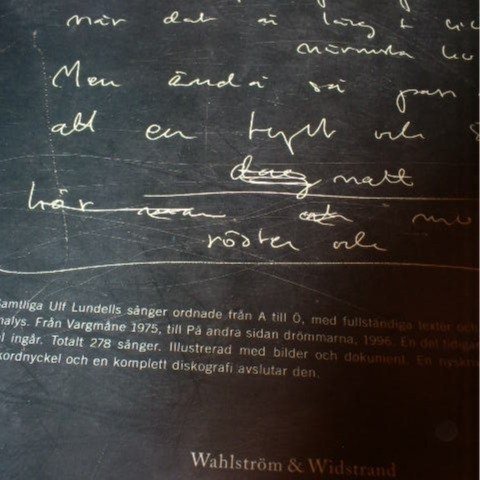 när det är lång
närmsta
Men ändå så pass
att en tyst och
natt
hör
röster och
Samtliga Ulf Lundells sånger ordnade från A till Ö, med fullständiga texter och
nalys. Från Vargmåne 1975, till På andra sidan drömmarna, 1996. En del tidigar
l ingår. Totalt 278 sånger. Illustrerad med bilder och dokument. En nyskr
kordnyckel och en komplett diskografi avslutar den.
Wahlström & Widstrand